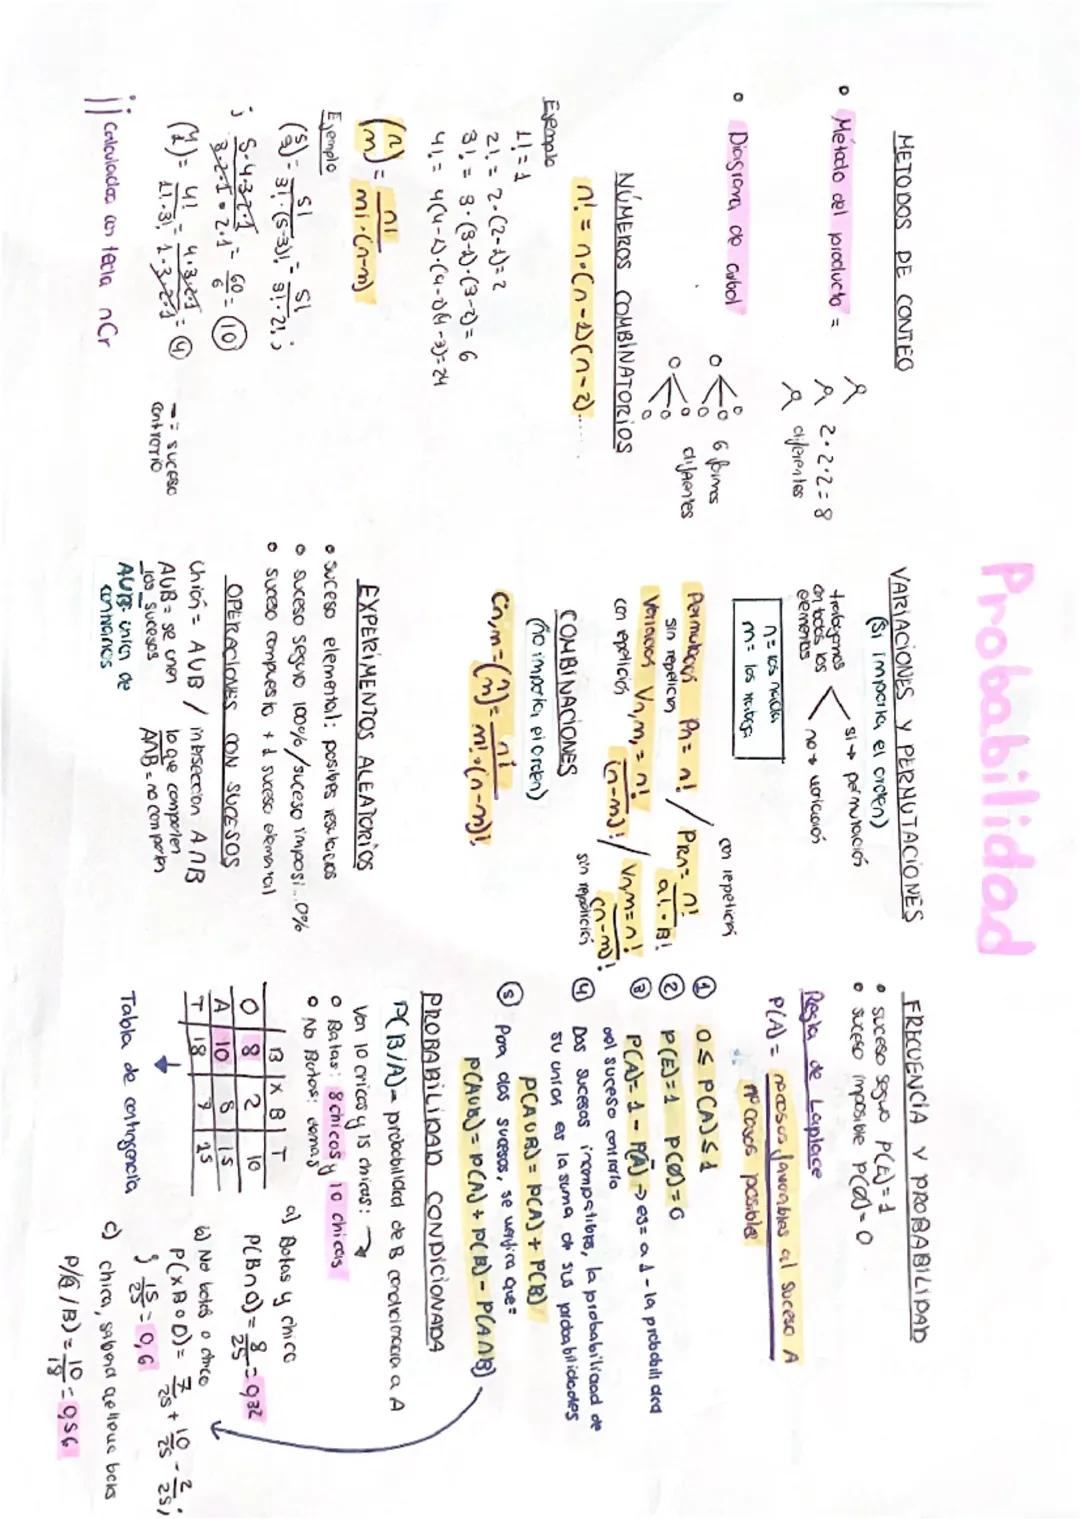 Probabilidad
METODOS DE CONTEO
Método del producto =
2·2·2=8
diferentes
Diagrama de arbol
6 formas
diferentes
NÚMEROS COMBINATORIOS
n! = n·(n-1)(n-2)......
Ejemplo
1! = 1
2! = 2·(2-1)=2
3! = 3·(3-1)·(3-2)=6
4! = 4(4-1)·(4-2)(4-3)=24
(n m) = n! / m!·(n-m)
Ejemplo
(5 3) = 5! / 3!·(5-3)! = 5! / 3!·2! ;
; 5·4·3·2·1 / 3·2·1·2·1 = 60 / 6 = 10
(4 1) = 4! / 1!·3! = 4·3·2·1 / 1·3·2·1 = 4
¡¡ Calculadora con tecla nCr
VARIACIONES Y PERMUTACIONES
(Si importa el orden)
trabajamos
con todos los
elementos
si → permutación
no → variación
m = los
Permutación
sin repetición
Pn = n!
con repetición
PRn = n! / a!·B!
Variación
con repetición
Vn,m, = n! / (n-m)!
Vn,m = n! / (n-m)!
sin repetición
COMBINACIONES
(no importa el orden)
Cn,m = (n m) = n! / m!·(n-m)!
EXPERIMENTOS ALEATORIOS
suceso elemental: posibles resultados
suceso seguro 100%/suceso imposi..0%
suceso compuesto + 1 suceso elemental
OPERACIONES CON SUCESOS
Unión = AUB / intersección A∩B
AUB = se unen
los sucesos
lo que comparten
A∩B = no comparten
AUB: unión de
contrarios
— = suceso
contrario
FRECUENCIA Y PROBABILIDAD
suceso seguro P(E)=1
suceso imposible P(Ø)=0
Regla de Laplace
P(A) = nº casos favorables al suceso A
nº casos posibles
① 0 ≤ P(A) ≤ 1
② P(E)=1 P(Ø)=0
③ P(A)= 1 - P(Ā) → es = a 1 - la probabilidad
del suceso contrario
④ Dos sucesos incompatibles, la probabilidad de
su unión es la suma de sus probabilidades
P(AUB) = P(A) + P(B)
⑤ Para dos sucesos, se verifica que:
P(AUB) = P(A) + P(B) - P(A∩B)
PROBABILIDAD CONDICIONADA
P(B/A) = probabilidad de B condicionada a A
Van 10 chicos y 15 chicas: →
Botas: 8 chicos y 10 chicas
No Botas: demás
B | X B | T
O | 8 | 2 | 10
A | 10 | 5 | 15
T | 18 | 7 | 25
Tabla de contingencia
a) Botas y chico
P(B∩O) = 8/25 = 0,32
b) No botas o chico
P(XB o O) = 7/25 + 10/25 - 2/25 ;
; 15/25 = 0,6
c) chica, sabiendo que lleva botas
/B) = 10/18 = 0,56